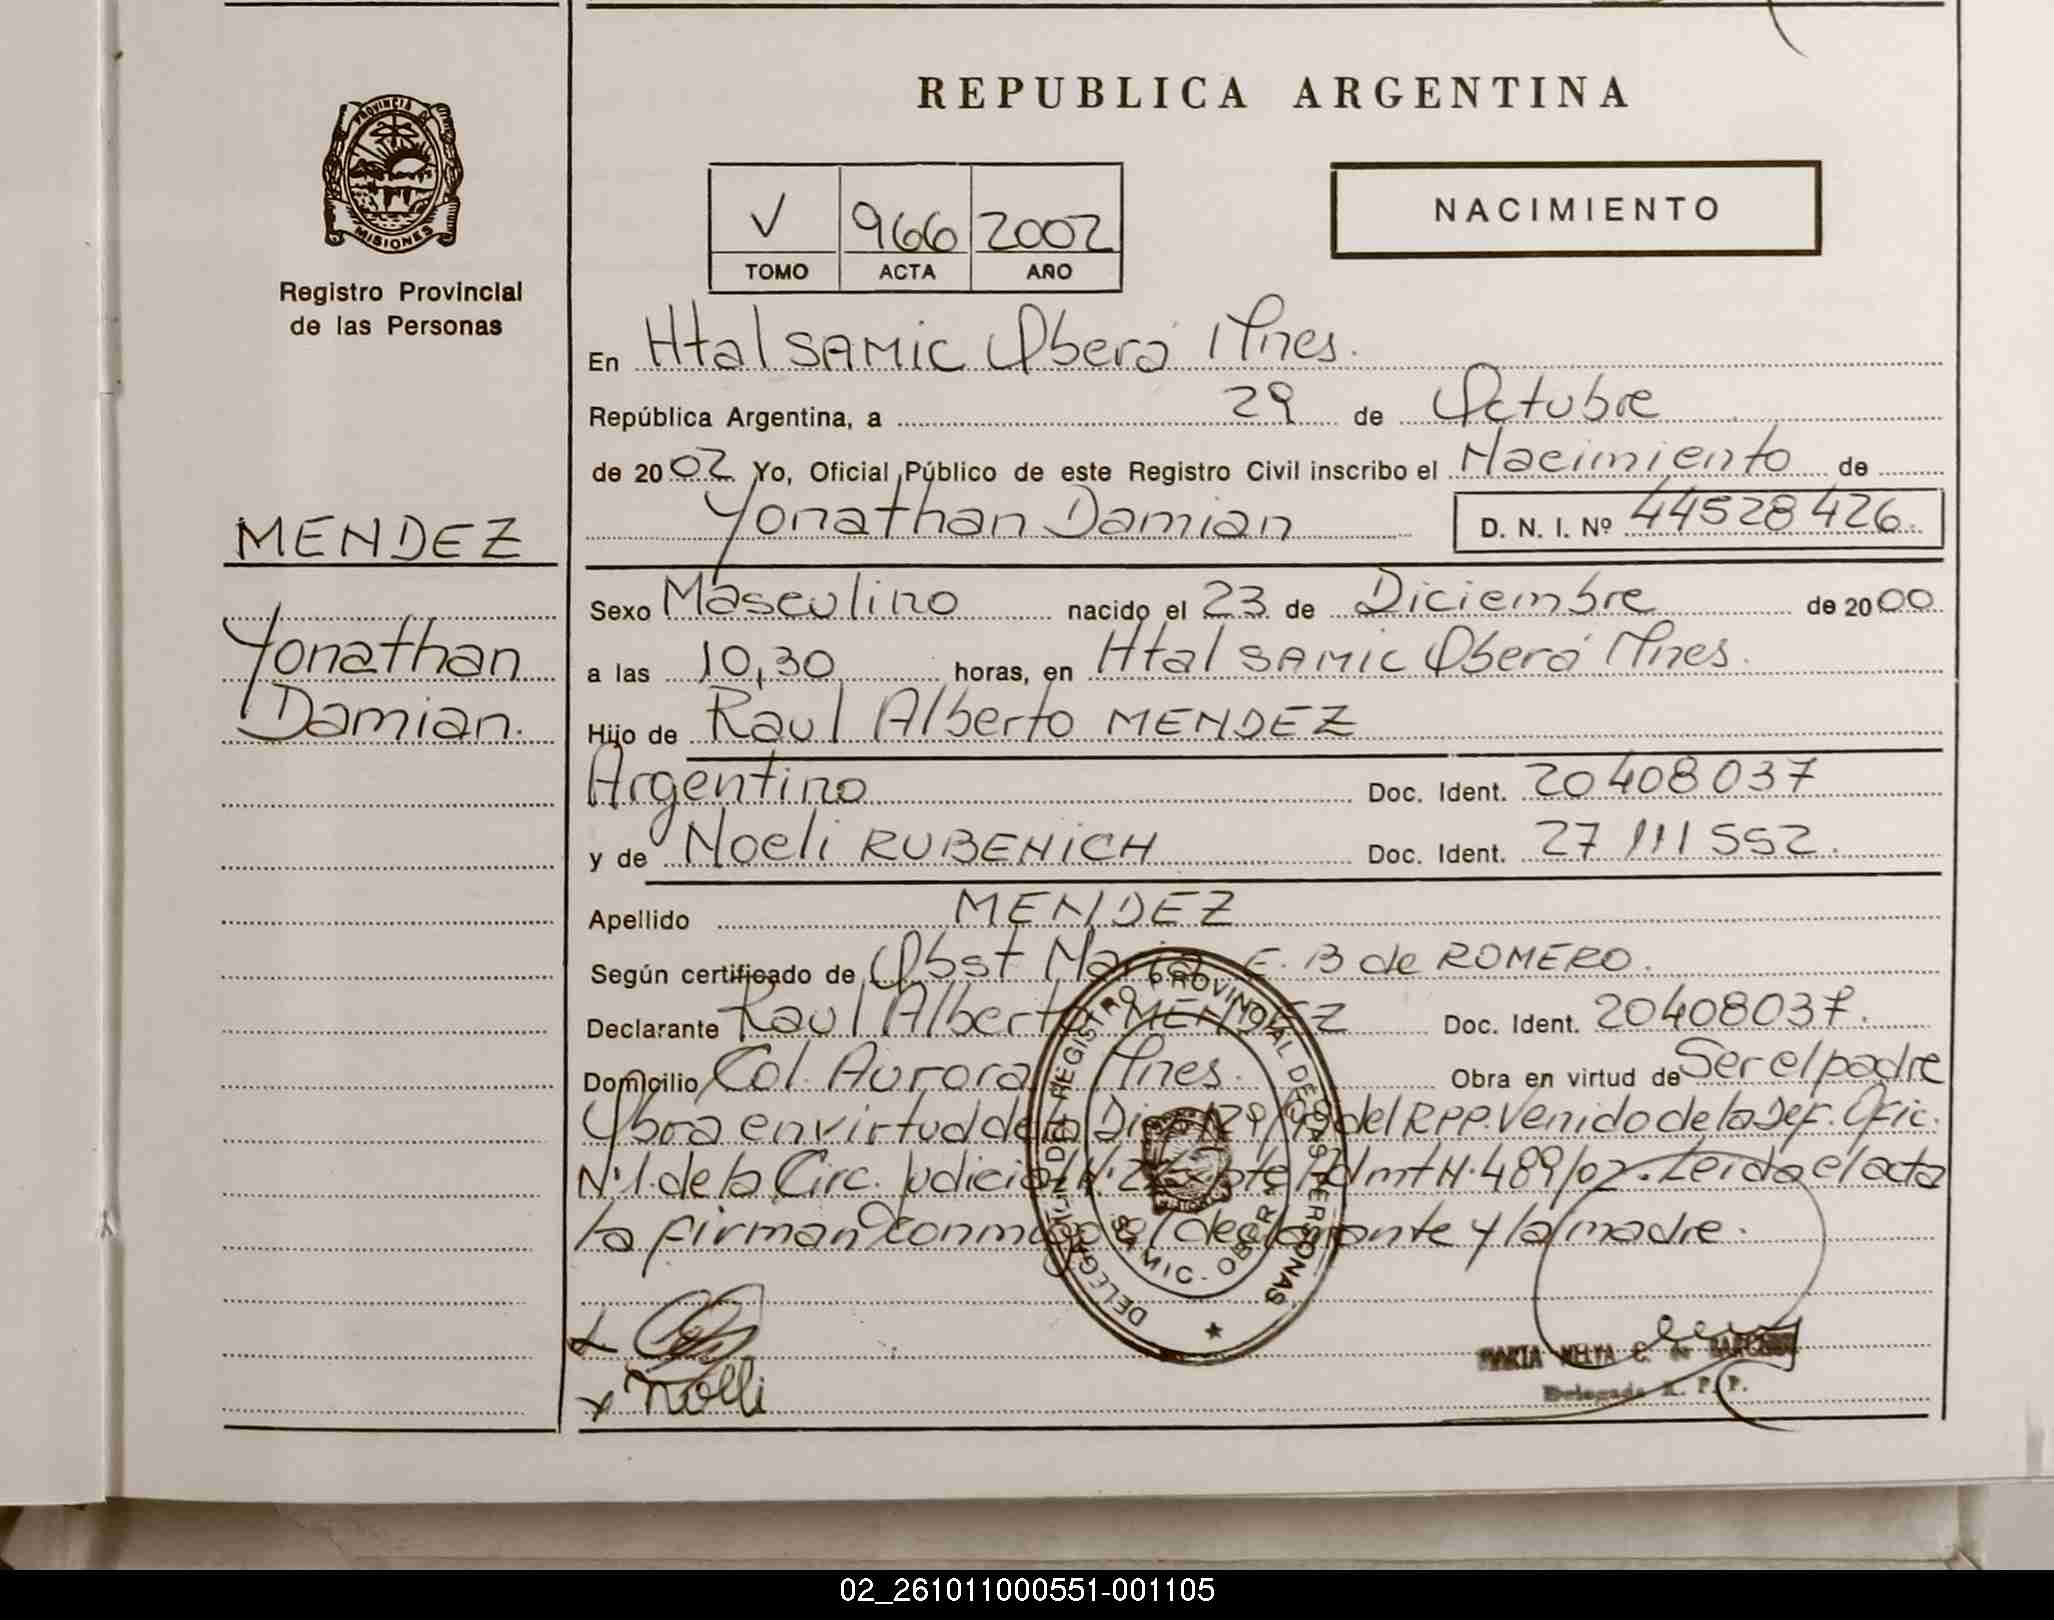 REPUBLICA ARGENTINA
PROVINCIA DE
MISIONES
Registro Provincial
de las Personas
V 966 2002
TOMO ACTA AÑO
NACIMIENTO
En Htal SAMIC Oberá Mnes.
República Argentina, a 29 de Octubre
de 2002 Yo, Oficial Público de este Registro Civil inscribo el Nacimiento de
Yonathan Damian D. N. I. Nº 44528426.
MENDEZ
Yonathan
Damian.
Sexo Masculino nacido el 23 de Diciembre de 2000
a las 10,30 horas, en Htal SAMIC Oberá Mnes.
Hijo de Raul Alberto MENDEZ
Argentino Doc. Ident. 20408037
y de Noeli RUBENICH Doc. Ident. 27111552.
Apellido MENDEZ
Según certificado de Obst Maria E. B de ROMERO.
Declarante Raul Alberto MENDEZ Doc. Ident. 20408037.
Domicilio Col. Aurora Mnes. Obra en virtud de Ser el padre
Obra en virtud de la 129/98 del RPP. Venido de la Def. Ofic.
Nº1. de la Circ. Judicial Nº 2 N. 489/02. Leida el acta
la firman conmigo el declarante y la madre.
DELEGACION DEL REGISTRO PROVINCIAL DE LAS PERSONAS
SAMIC - OBERA
Nolli
MARIA NELYA C. de
Delegada R. P. P.
02_261011000551-001105